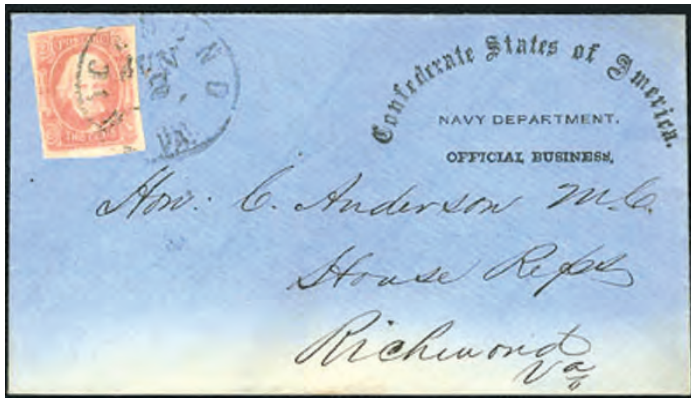 Confederate States of America.
NAVY DEPARTMENT.
OFFICIAL BUSINESS,
Hon: C. Anderson M.C.
House Reps
Richmond
Va
VA.